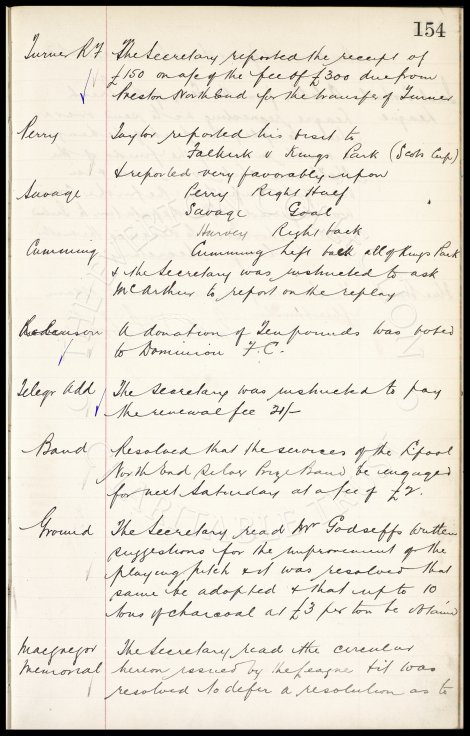 154
Turner R F The Secretary reported the receipt of
£150 on a/c of the fee of £300 due from
Preston North End for the transfer of Turner
Perry Taylor reported his visit to
Falkirk v Kings Park (Scots Cup)
& reported very favorably upon
Savage Perry Right Half
Savage Goal
Harvey Right back
Cumming Cumming left back all of Kings Park
& the Secretary was instructed to ask
McArthur to report on the replay
A donation of Ten pounds was voted
to Dominion F.C.
Telegr Add The Secretary was instructed to pay
the renewal fee 21/-
Band Resolved that the services of the L'pool
North End Silver Prize Band be engaged
for next Saturday at a fee of £2.
Ground The Secretary read Mr Godseffs written
suggestions for the improvement of the
playing pitch & it was resolved that
same be adopted & that up to 10
tons of charcoal at £3 per ton be obtained
Macgregor The Secretary read the circular
Memorial hereon issued by the League & it was
resolved to defer a resolution as to